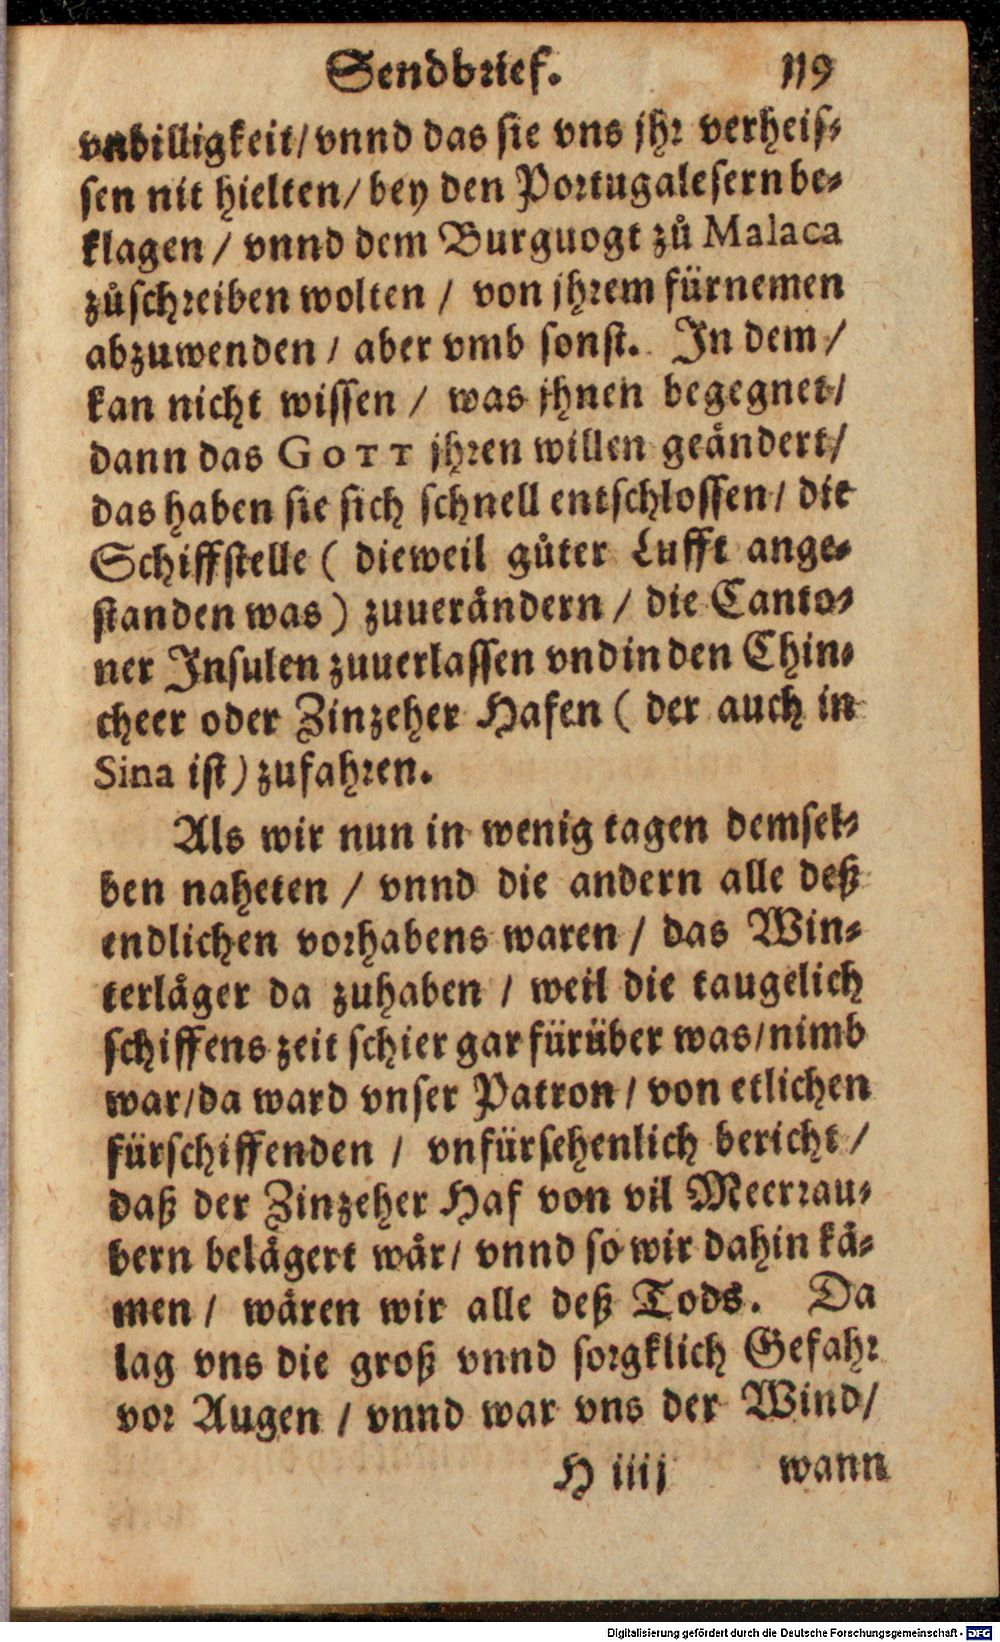 Sendbrief. 119
vnbilligkeit/ vnnd das sie vns jhr verheis-
sen nit hielten/ bey den Portugalesern be-
klagen / vnnd dem Burguogt zů Malaca
zůschreiben wolten / von jhrem fürnemen
abzuwenden / aber vmb sonst. In dem/
kan nicht wissen / was jhnen begegnet/
dann das GOTT jhren willen geändert/
das haben sie sich schnell entschlossen/ die
Schiffstelle ( dieweil gůter Lufft ange-
standen was) zuuerändern / die Canto-
ner Insulen zuuerlassen vnd in den Chin-
cheer oder Zinzeher Hafen ( der auch in
Sina ist) zufahren.
Als wir nun in wenig tagen demsel-
ben naheten / vnnd die andern alle deß
endlichen vorhabens waren / das Win-
terläger da zuhaben / weil die taugelich
schiffens zeit schier gar fürüber was/ nimb
war/ da ward vnser Patron / von etlichen
fürschiffenden / vnfürsehenlich bericht /
daß der Zinzeher Haf von vil Meerrau-
bern belägert wär/ vnnd so wir dahin kä-
men / wären wir alle deß Tods. Da
lag vns die groß vnnd sorgklich Gefahr
vor Augen / vnnd war vns der Wind/
H iiij wann
Digitalisierung gefördert durch die Deutsche Forschungsgemeinschaft - DFG